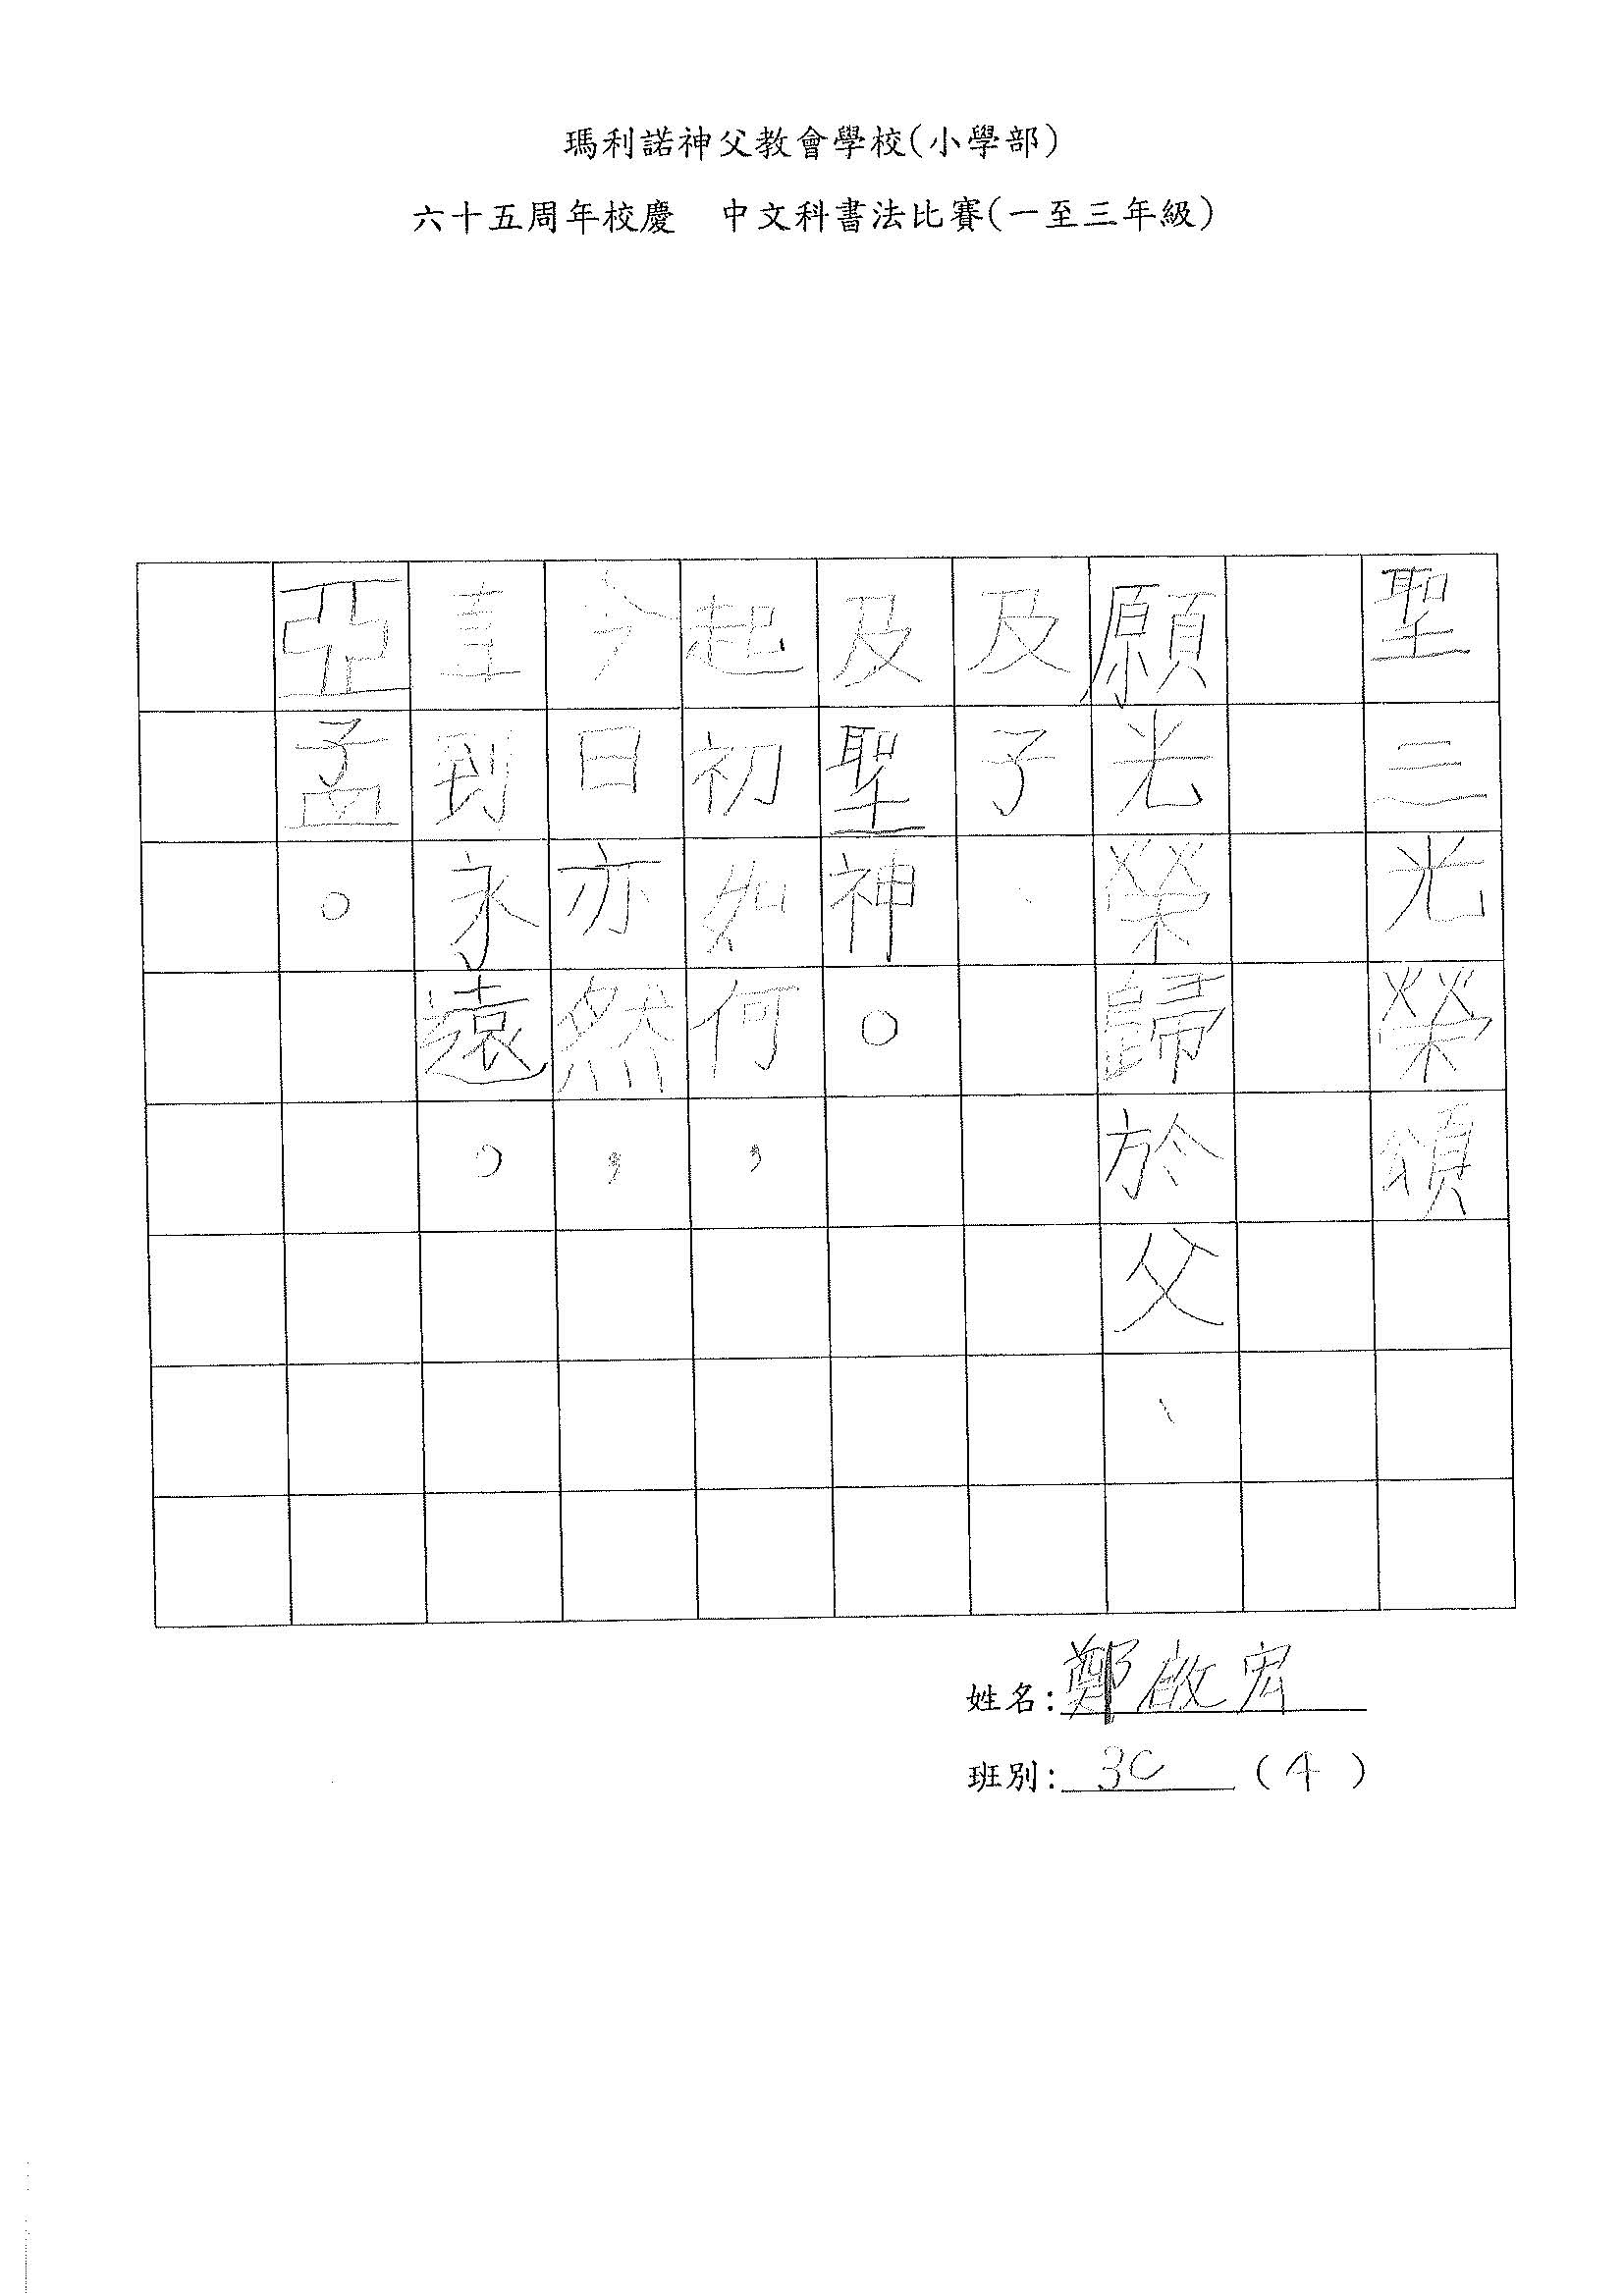 瑪利諾神父教會學校(小學部)
六十五周年校慶　中文科書法比賽(一至三年級)
聖三光榮頌
願光榮歸於父、
及子、
及聖神。
起初如何，
今日亦然，
直到永遠。
亞孟。
姓名:鄭啟宏
班別:3C(4)